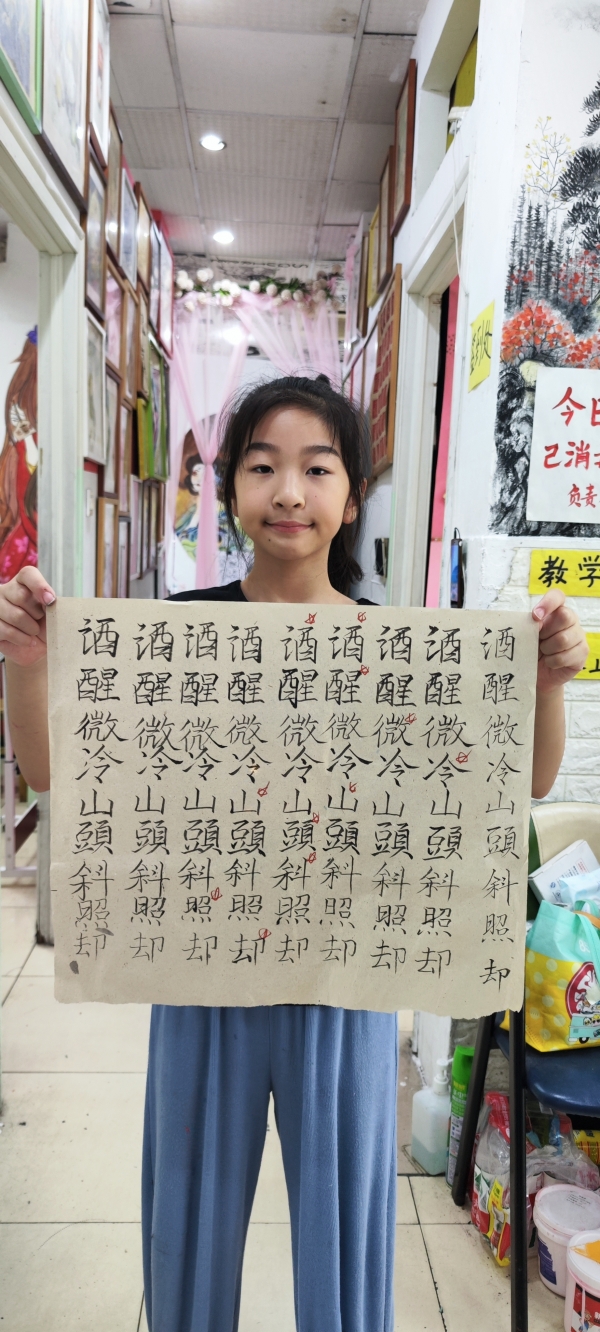 酒醒微冷山頭斜照却
酒醒微冷山頭斜照却
酒醒微冷山頭斜照却
酒醒微冷山頭斜照却
酒醒微冷山頭斜照却
酒醒微冷山頭斜照却
酒醒微冷山頭斜照却
酒醒微冷山頭斜照却
酒醒微冷山頭斜照却
签到处
今日
已消
负责
教学
止